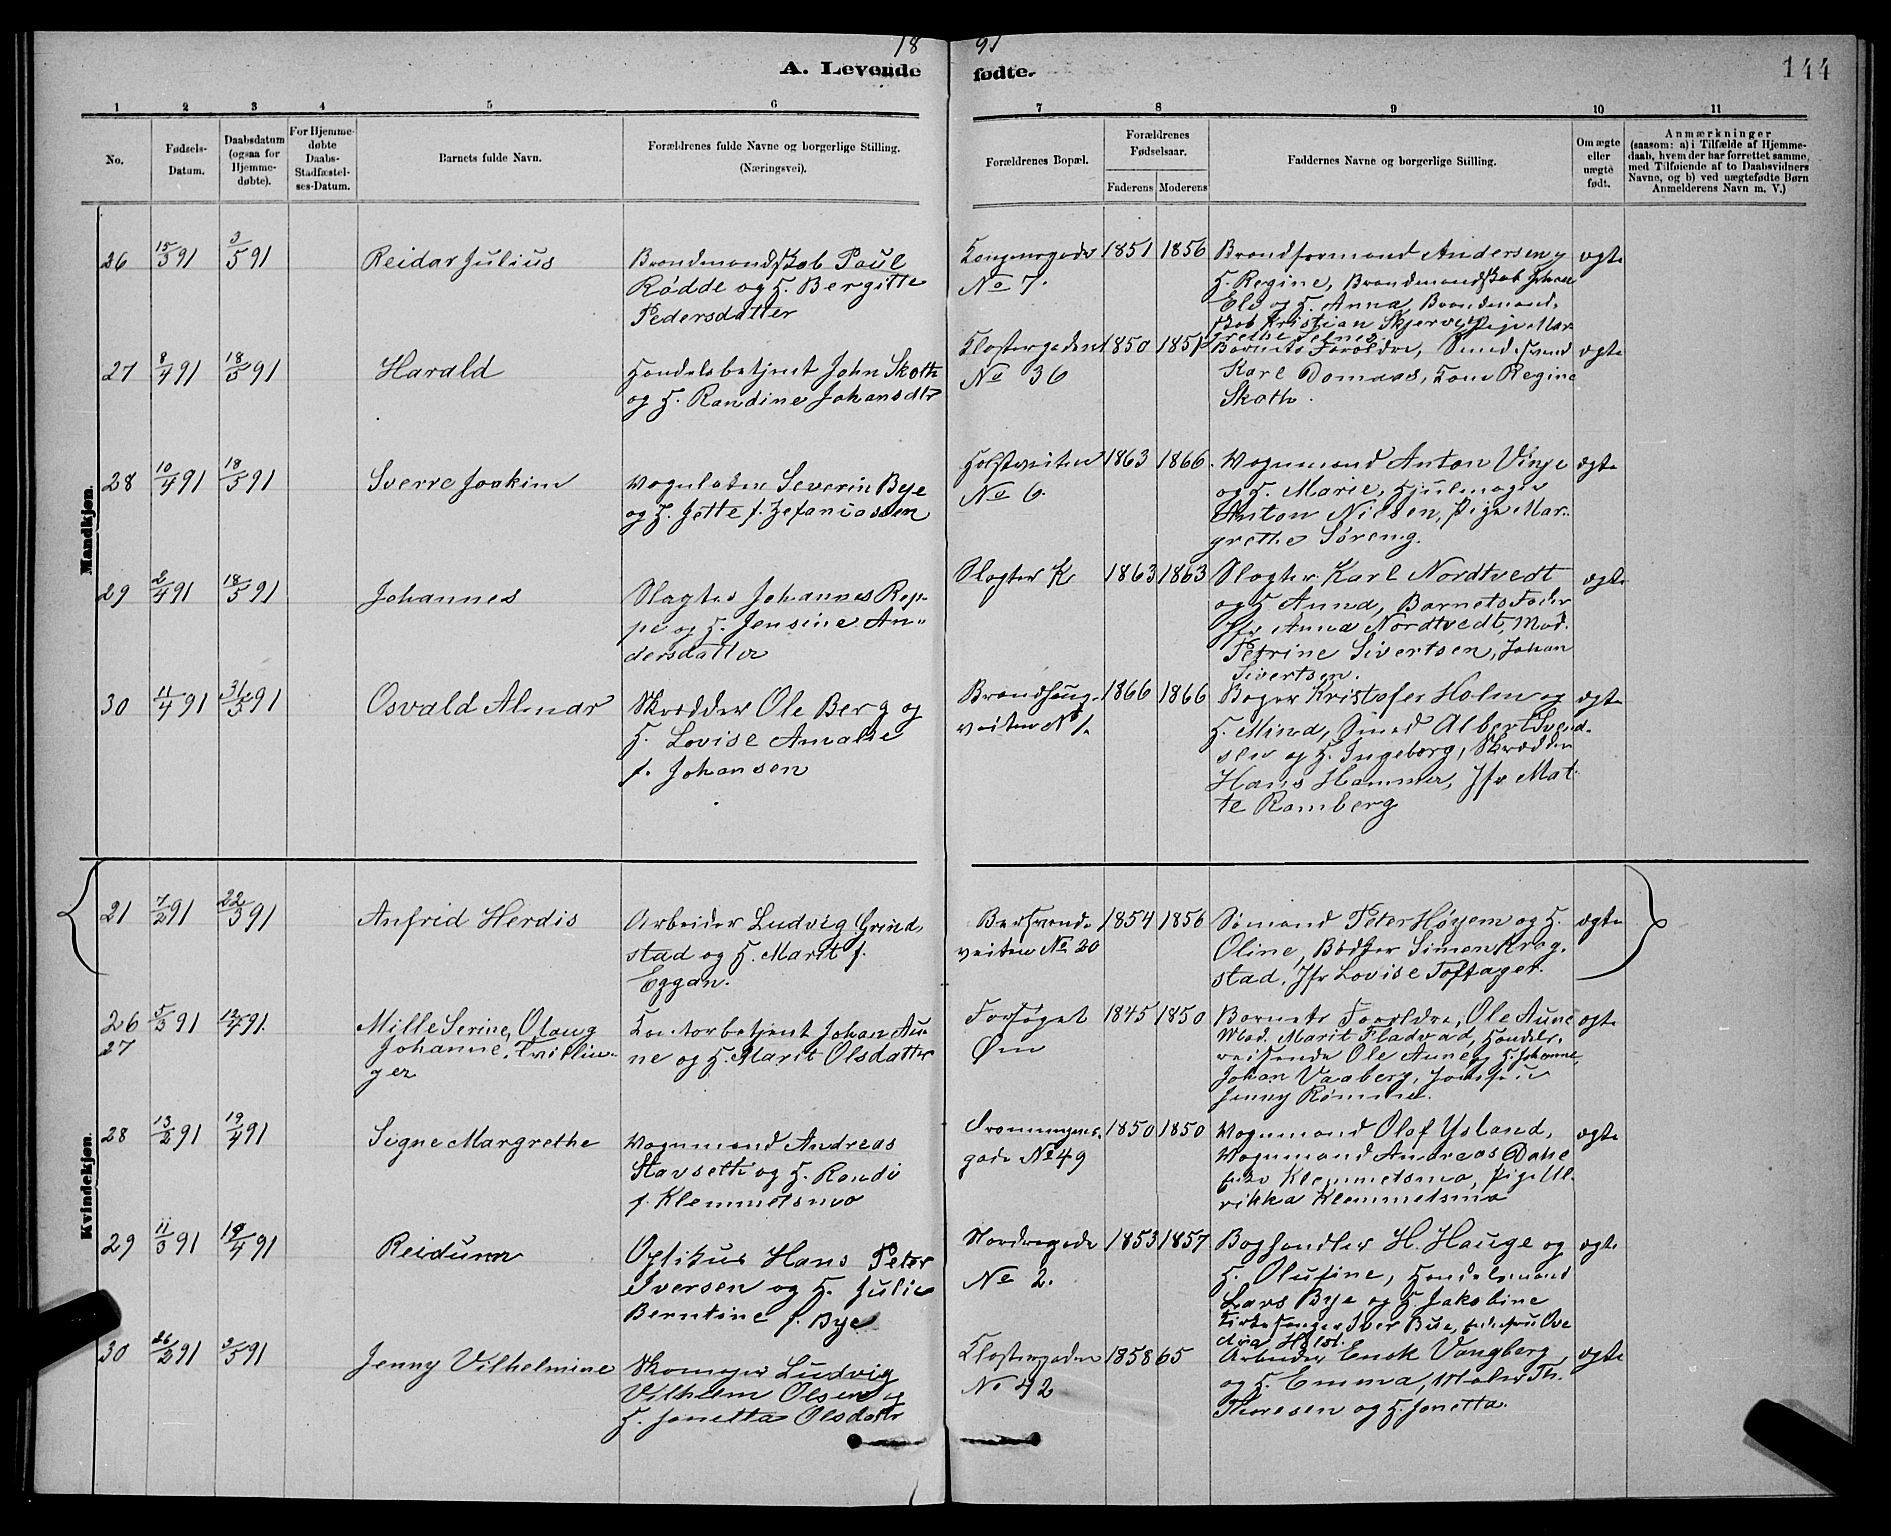 18 91
A. Levende fødte. 144
1 2 3 4 5 6 7 8 9 10 11
No.
Fødsels-
Datum.
Daabsdatum
(ogsaa for
Hjemme-
døbte).
For Hjemme-
døbte
Daabs-
Stadfæstel-
ses-Datum.
Barnets fulde Navn.
Forældrenes fulde Navne og borgerlige Stilling.
(Næringsvei).
Forældrenes Bopæl.
Forældrenes
Fødselsaar.
Faderens Moderens
Faddernes Navne og borgerlige Stilling.
Om ægte
eller
uægte
født.
Anmærkninger
(saasom: a) i Tilfælde af Hjemme-
daab, hvem der har forrettet samme,
med Tilføiende af to Daabsvidners
Navne, og b) ved uægtefødte Børn
Anmelderens Navn m. V.)
Mandkjøn.
26 15/3 91 3/5 91 Reidar Julius
Brandmandskab Paul
Rødde og H. Bergitte
Pedersdatter
Kongensgade
No 7.
1851 1856
Brandformand Andersen og
H. Regine, Brandmandskab Johan
Elv og H. Anna, Brandmand-
skab Kristian Skjervø, Pige Mar-
grethe Selnes.
ægte
27 8/4 91 18/5 91 Harald
Handelsbetjent John Skoth
og H. Randine Johansdtr
Klostergaden
No 36
1850 1851
Barnets Forældre, Smedesvend
Karl Domaas, Kone Regine
Skoth.
ægte
28 10/4 91 18/5 91 Sverre Joakim
Vognlader Severin Bye
og H. Jette f. Zefaniassen
Holstveiten
No 6.
1863 1866
Vognmand Anton Vinje
og H. Marie, Hjulmager
Anton Nielsen, Pige Mar-
grethe Søreng.
ægte
29 2/4 91 18/5 91 Johannes
Slagter Johannes Rep-
pe og H. Jensine An-
dersdatter
Slagter K.
1863 1863
Slagter Karl Nordtvedt
og H. Anna, Barnets Fader
Jfr Anna Nordtvedt, Mad.
Petrine Sivertsen, Johan
Sivertsen.
ægte
30 11/4 91 31/5 91 Osvald Almar
Skrædder Ole Berg og
H. Lovise Amalie
f. Johansen
Brandhaug-
veiten No 1.
1866 1866
Bager Kristofer Holm og
H. Mina, Smed Albert Svend-
sen og H. Ingeborg, Skrædder
Hans Hammer, Jfr Mat-
te Ramberg
ægte
Kvindekjøn.
21 7/2 91 22/3 91 Anfrid Herdis
Arbeider Ludvig Grind-
stad og H. Marit f.
Eggan.
Bersvends-
veiten No 20
1854 1856
Sømand Peter Høyem og H.
Oline, Bødker Simon Krog-
stad, Jfr Lovise Toftager.
ægte
26 5/3 91 12/4 91 Mille Serine, Olaug
27 Johanne, Tvillin-
ger
Kontorbetjent Johan Au-
ne og H. Marit Olsdatter
Forsøget
Øen
1845 1850
Barnets Forældre, Ole Aune
Mad. Marit Fladvad, Handels-
reisende Ole Aune og H. Johanne,
Johan Vaaberg,
Jenny Rømme.
ægte
28 13/2 91 19/4 91 Signe Margrethe
Vognmand Andreas
Stavseth og H. Randi
f. Klemmetsmo
Dronningens-
gade No 49
1850 1850
Vognmand Olof Ysland,
Vognmand Andreas Dahl
Klemmetsmo, Pige Ul-
rikka Klemmetsmo
ægte
29 11/3 91 19/4 91 Reidunn
Optikus Hans Peter
Iversen og H. Julie
Berntine f. Bye
Nordregade
No 2.
1853 1857
Boghandler H. Hauge og
H. Olufine, Handelsmand
Lars Bye og H. Jakobine
Kirkesanger Iver Bue, Ove
dia Holst.
ægte
30 26/2 91 3/5 91 Jenny Vilhelmine
Skomager Ludvig
Vilhelm Olsen og
H. Jonetta Olsdatter
Klostergaden
No 42
1858 65
Arbeider Ensk Vangberg
og H. Emma, Maler Th.
Thoresen og H. Jonetta.
ægte